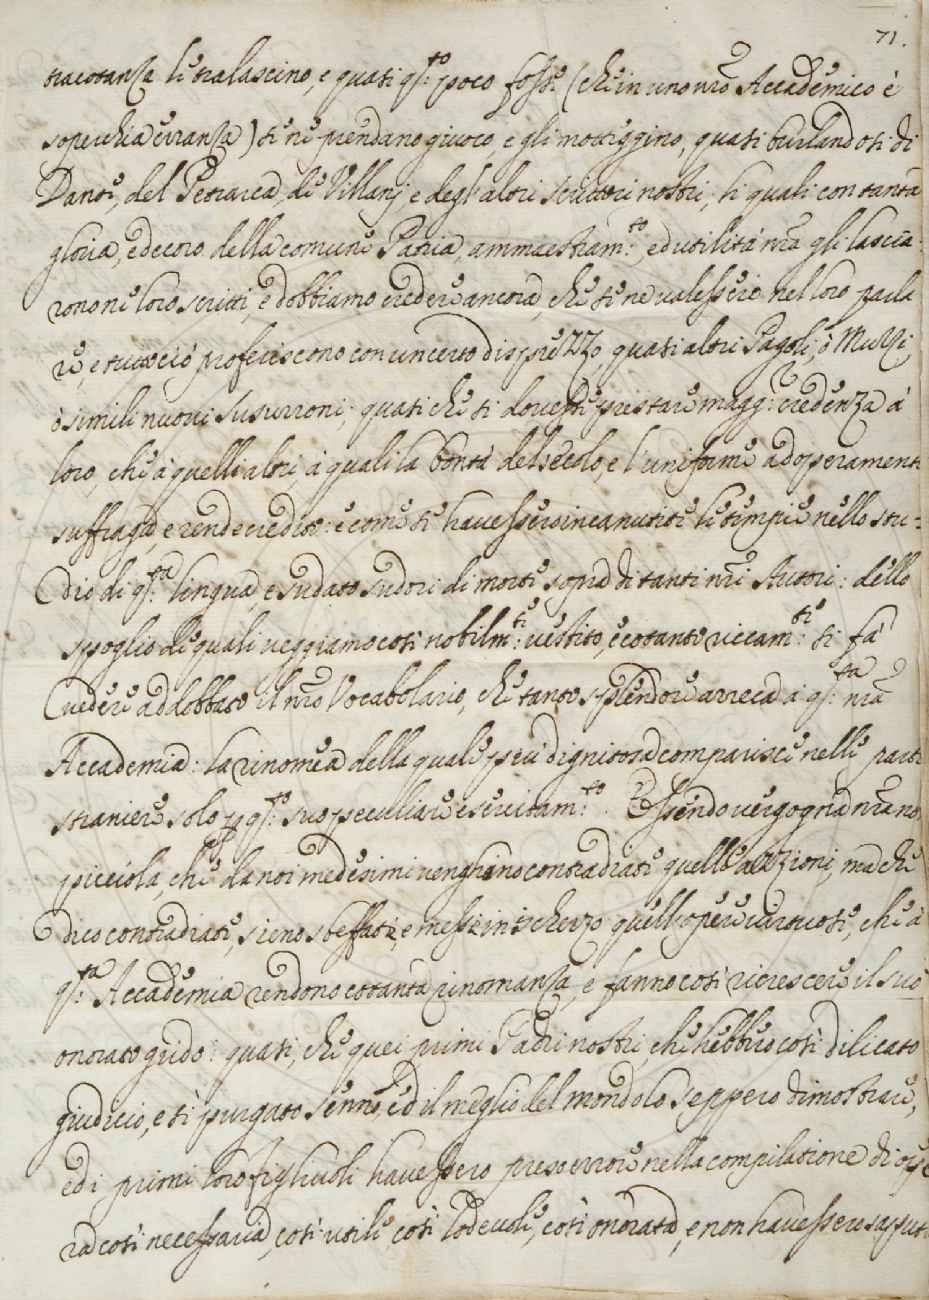 71.
tracotanza li tralascino, e quasi q.to poco fosse (che in uno nro Accademico è
soperchia erranza) si ne prendano giuoco, e gli mottiggino, quasi burlandosi di
Dante, del Petrarca, de Villanj, e degl'altri scrittori nostri, li quali con tanta
gloria, e decoro della comune Patria, ammaestram.to, ed utilità nra gli lascia-
rono ne loro scritti, e dobbiamo credere ancora, che se ne valessero nel loro parla
re, e tuttociò proferiscono con un certo disprezzo, quasi altri Pagoli, ò Muzi
ò simili nuovi susurroni; quasi che si dovesse prestare magg.re credenza à
loro, che à quelli altri, à quali la bontà del secolo, e l'uniforme adoperamento
suffraga, e rende credito: e come se havessero incanutite le tempie nello stu-
dio di q.ta lingua, e sudato sudori di morte sopra di tanti nri Autori: dello
spoglio de quali veggiamo così nobilm.te vestito, e cotanto riccam.te si fà
vedere addobbato il nro Vocabolario, che tanto splendore arreca à q.ta nra
Accademia: la rinomea della quale più dignitosa comparisce nelle parti
straniere solo p q.to suo peculiare esercitam.to. Essendo vergogna nra no
picciola, che da noi medesimi venghino contradiate quelle azzioni, ma che
dico contradiate, sieno sbeffate, e messe in ischerzo quell'opere virtuose, che à
q.ta Accademia rendono cotanta rinomanza, e fanno così ricrescere il suo
onorato grido: quasi, che quei primi Padri nostri, che hebbero così dilicato
giudicio, e sì purgato senno, ed il meglio del mondo lo seppero dimostrare,
ed i primi loro figliuoli havessero preso errore nella compilatione di ope
ra così necessaria, così utile, così lodevole, così onorata, e non havessero saputo